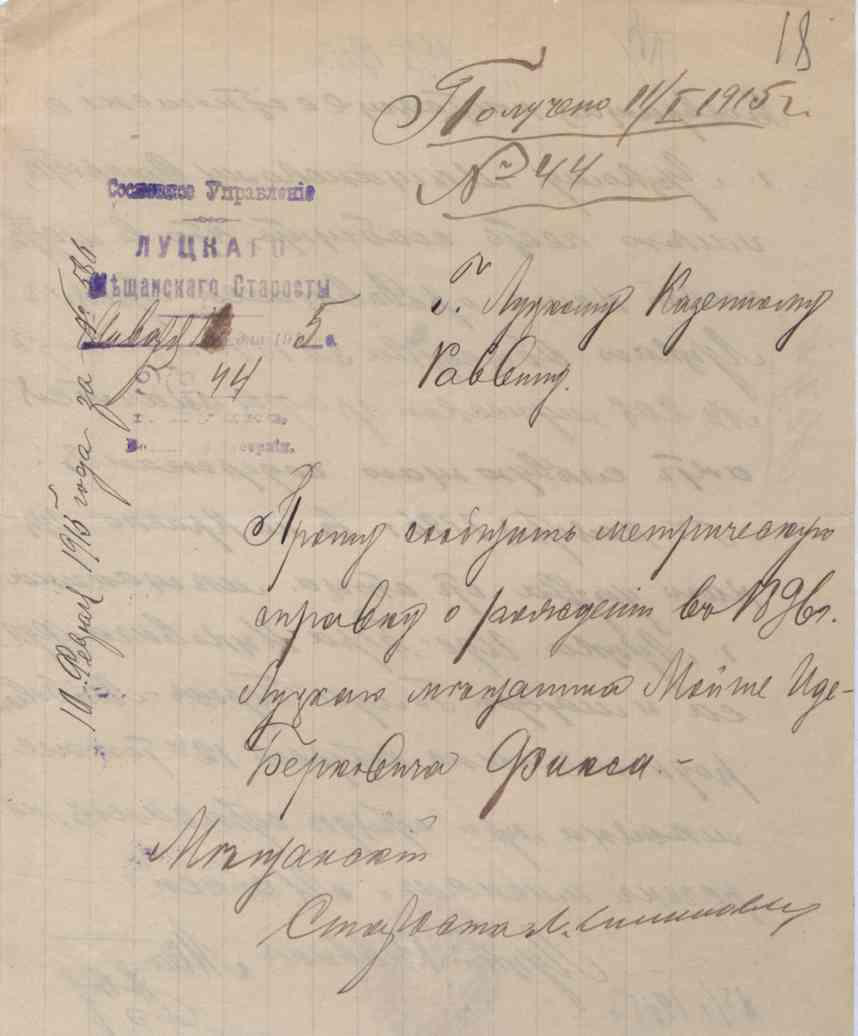 18
Получено 11/I 1915 г.
№ 44
Сословное Управленіе
ЛУЦКАГО
Мѣщанскаго Старосты
Января дня 1915 г.
№ 44
10 Февраля 1915 года за № 586
Г. Луцкому Казенному
Раввину.
Прошу сообщить метрическую
справку о рожденіи въ 1896 г.
Луцкаго мѣщанина Мойше Иде-
Берковича Фикса.-
Мѣщанскій
Староста